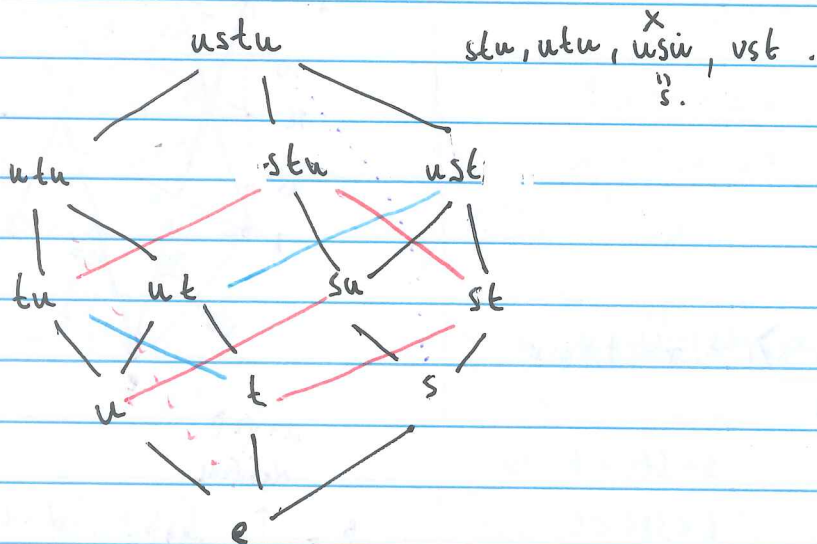 x
ustu stu, utu, usu, ust .
"
s.
utu stu ust
tu ut su st
u t s
e